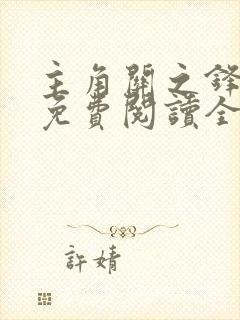 主角關之鋒
免費閱讀全
許婧